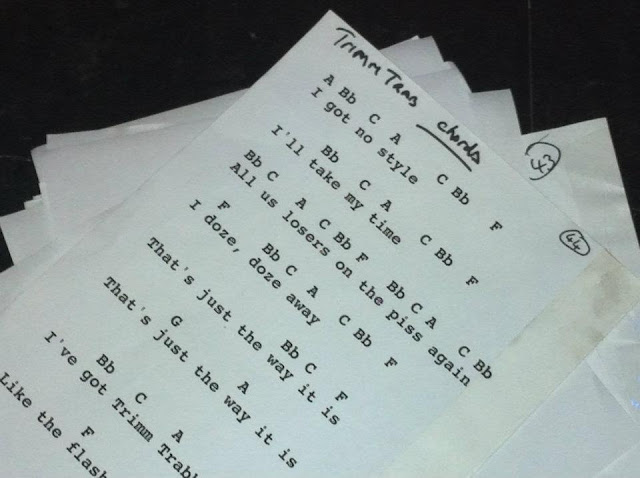 Trimm Trab chords
43
44
A Bb C A C Bb F
I got no style
Bb C A C Bb F
I'll take my time
Bb C A C Bb F Bb C A C Bb
All us losers on the piss again
F Bb C A C Bb F
I doze, doze away
Bb C F
That's just the way it is
G A
That's just the way it is
Bb C A
I've got Trimm
F
Like the